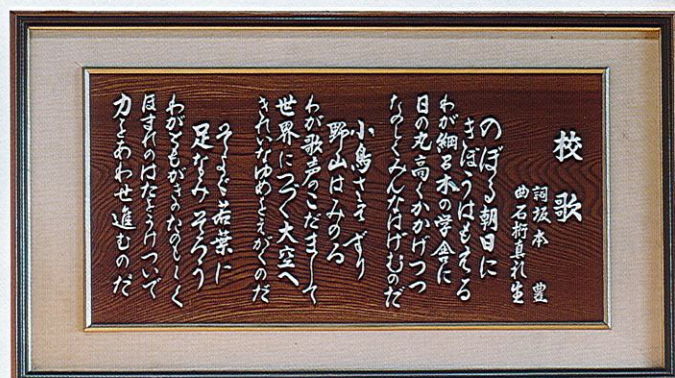 校歌
詞 坂本 豊
曲 石桁真礼生
のぼる朝日に
きぼうはもえる
わが細呂木の学舎に
日の丸高くかかげつつ
たのしくみんなはげむのだ
小鳥さえずり
野山はみのる
わが歌声のこだまして
世界につづく大空へ
きれいなゆめをえがくのだ
そよぐ若葉に
足なみそろう
わがともがきのたのもしく
ほまれのはたをうけついで
力をあわせ進むのだ